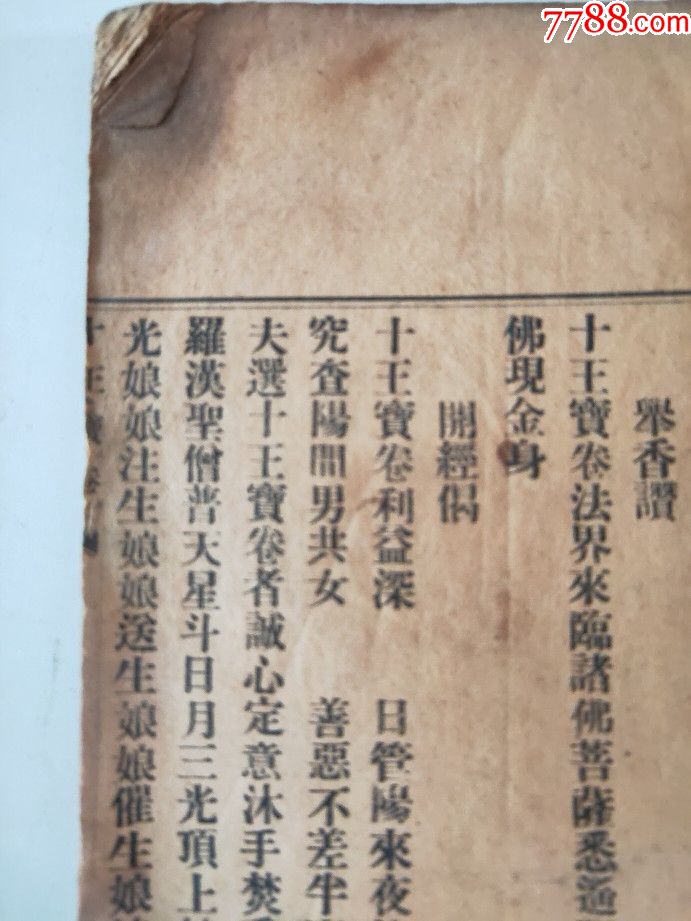 7788.com
舉香讚
十王寶卷法界來臨諸佛菩薩悉遙
佛現金身
開經偈
十王寶卷利益深 日管陽來夜
究查陽間男共女 善惡不差半
夫選十王寶卷者誠心定意沐手焚
羅漢聖僧普天星斗日月三光頂上
光娘娘注生娘娘送生娘娘催生娘
十王寶卷